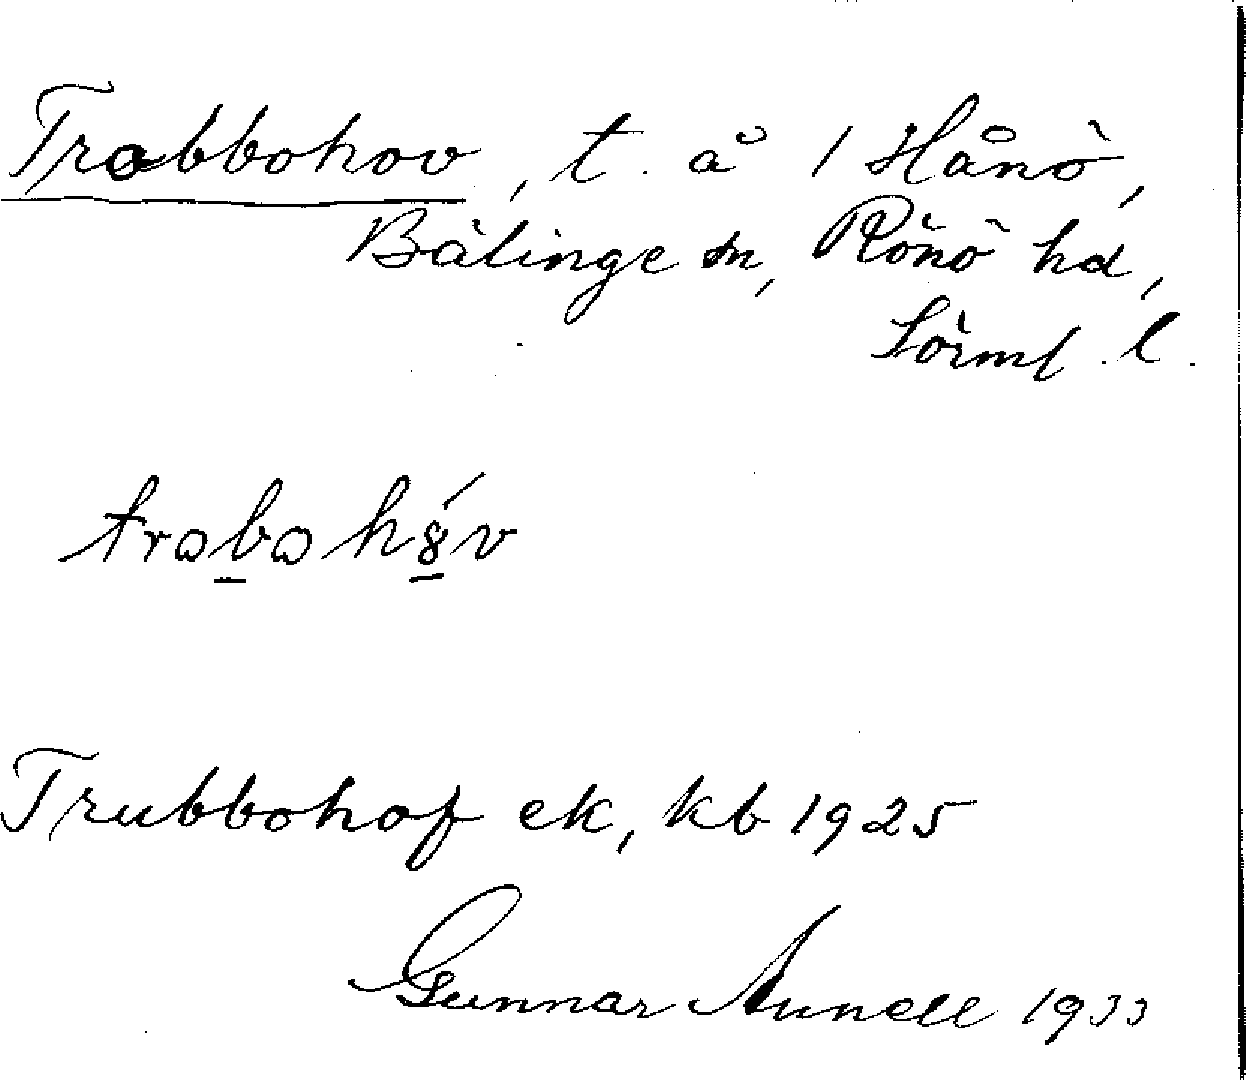 Trobbohov, t. å 1 Hånö,
Bälinge sn, Rönö hd,
Sörml. l.
trobohóv
Trubbohof ek, kb 1925
Gunnar Aunell 1933